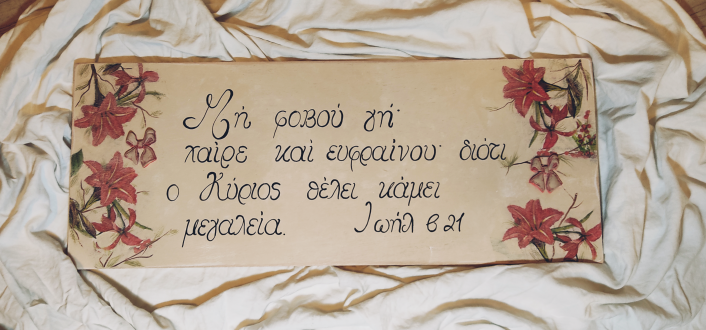 Μή φοβού γή·
χαίρε καί ευφραίνου· διότι
ο Κύριος θέλει κάμει
μεγαλεία. Ἰωήλ β 21